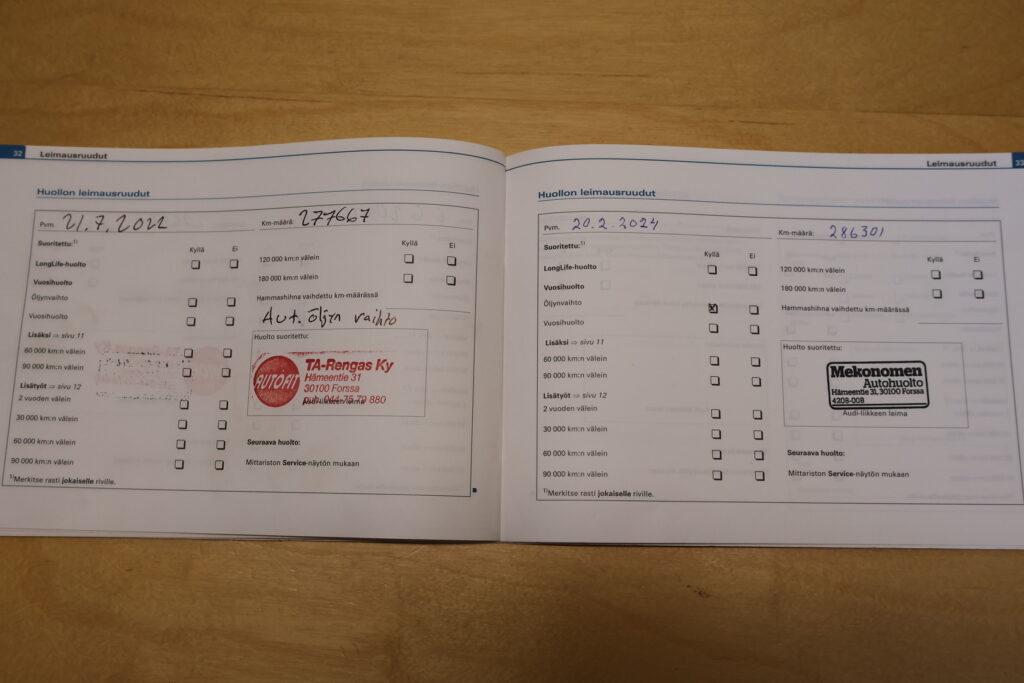 32 Leimausruudut
Huollon leimausruudut
Pvm. 21.7.2022 Km-määrä: 277667
Suoritettu:1) Kyllä Ei
LongLife-huolto
Vuosihuolto
Öljynvaihto
Vuosihuolto
Lisäksi ⇒ sivu 11
60 000 km:n välein
90 000 km:n välein
Lisätyöt ⇒ sivu 12
2 vuoden välein
30 000 km:n välein
60 000 km:n välein
90 000 km:n välein
1)Merkitse rasti jokaiselle riville.
Kyllä Ei
120 000 km:n välein
180 000 km:n välein
Hammashihna vaihdettu km-määrässä
Aut. öljyn vaihto
Huolto suoritettu:
AUTOFIT
TA-Rengas Ky
Hämeentie 31
30100 Forssa
puh. 044-75 79 880
Audi-liikkeen leima
Seuraava huolto:
Mittariston Service-näytön mukaan
Leimausruudut 33
Huollon leimausruudut
Pvm. 20.2.2024 Km-määrä: 286301
Suoritettu:1) Kyllä Ei
LongLife-huolto
Vuosihuolto
Öljynvaihto
Vuosihuolto
Lisäksi ⇒ sivu 11
60 000 km:n välein
90 000 km:n välein
Lisätyöt ⇒ sivu 12
2 vuoden välein
30 000 km:n välein
60 000 km:n välein
90 000 km:n välein
1)Merkitse rasti jokaiselle riville.
Kyllä Ei
120 000 km:n välein
180 000 km:n välein
Hammashihna vaihdettu km-määrässä
Huolto suoritettu:
Mekonomen
Autohuolto
Hämeentie 31, 30100 Forssa
4208-008
Audi-liikkeen leima
Seuraava huolto:
Mittariston Service-näytön mukaan